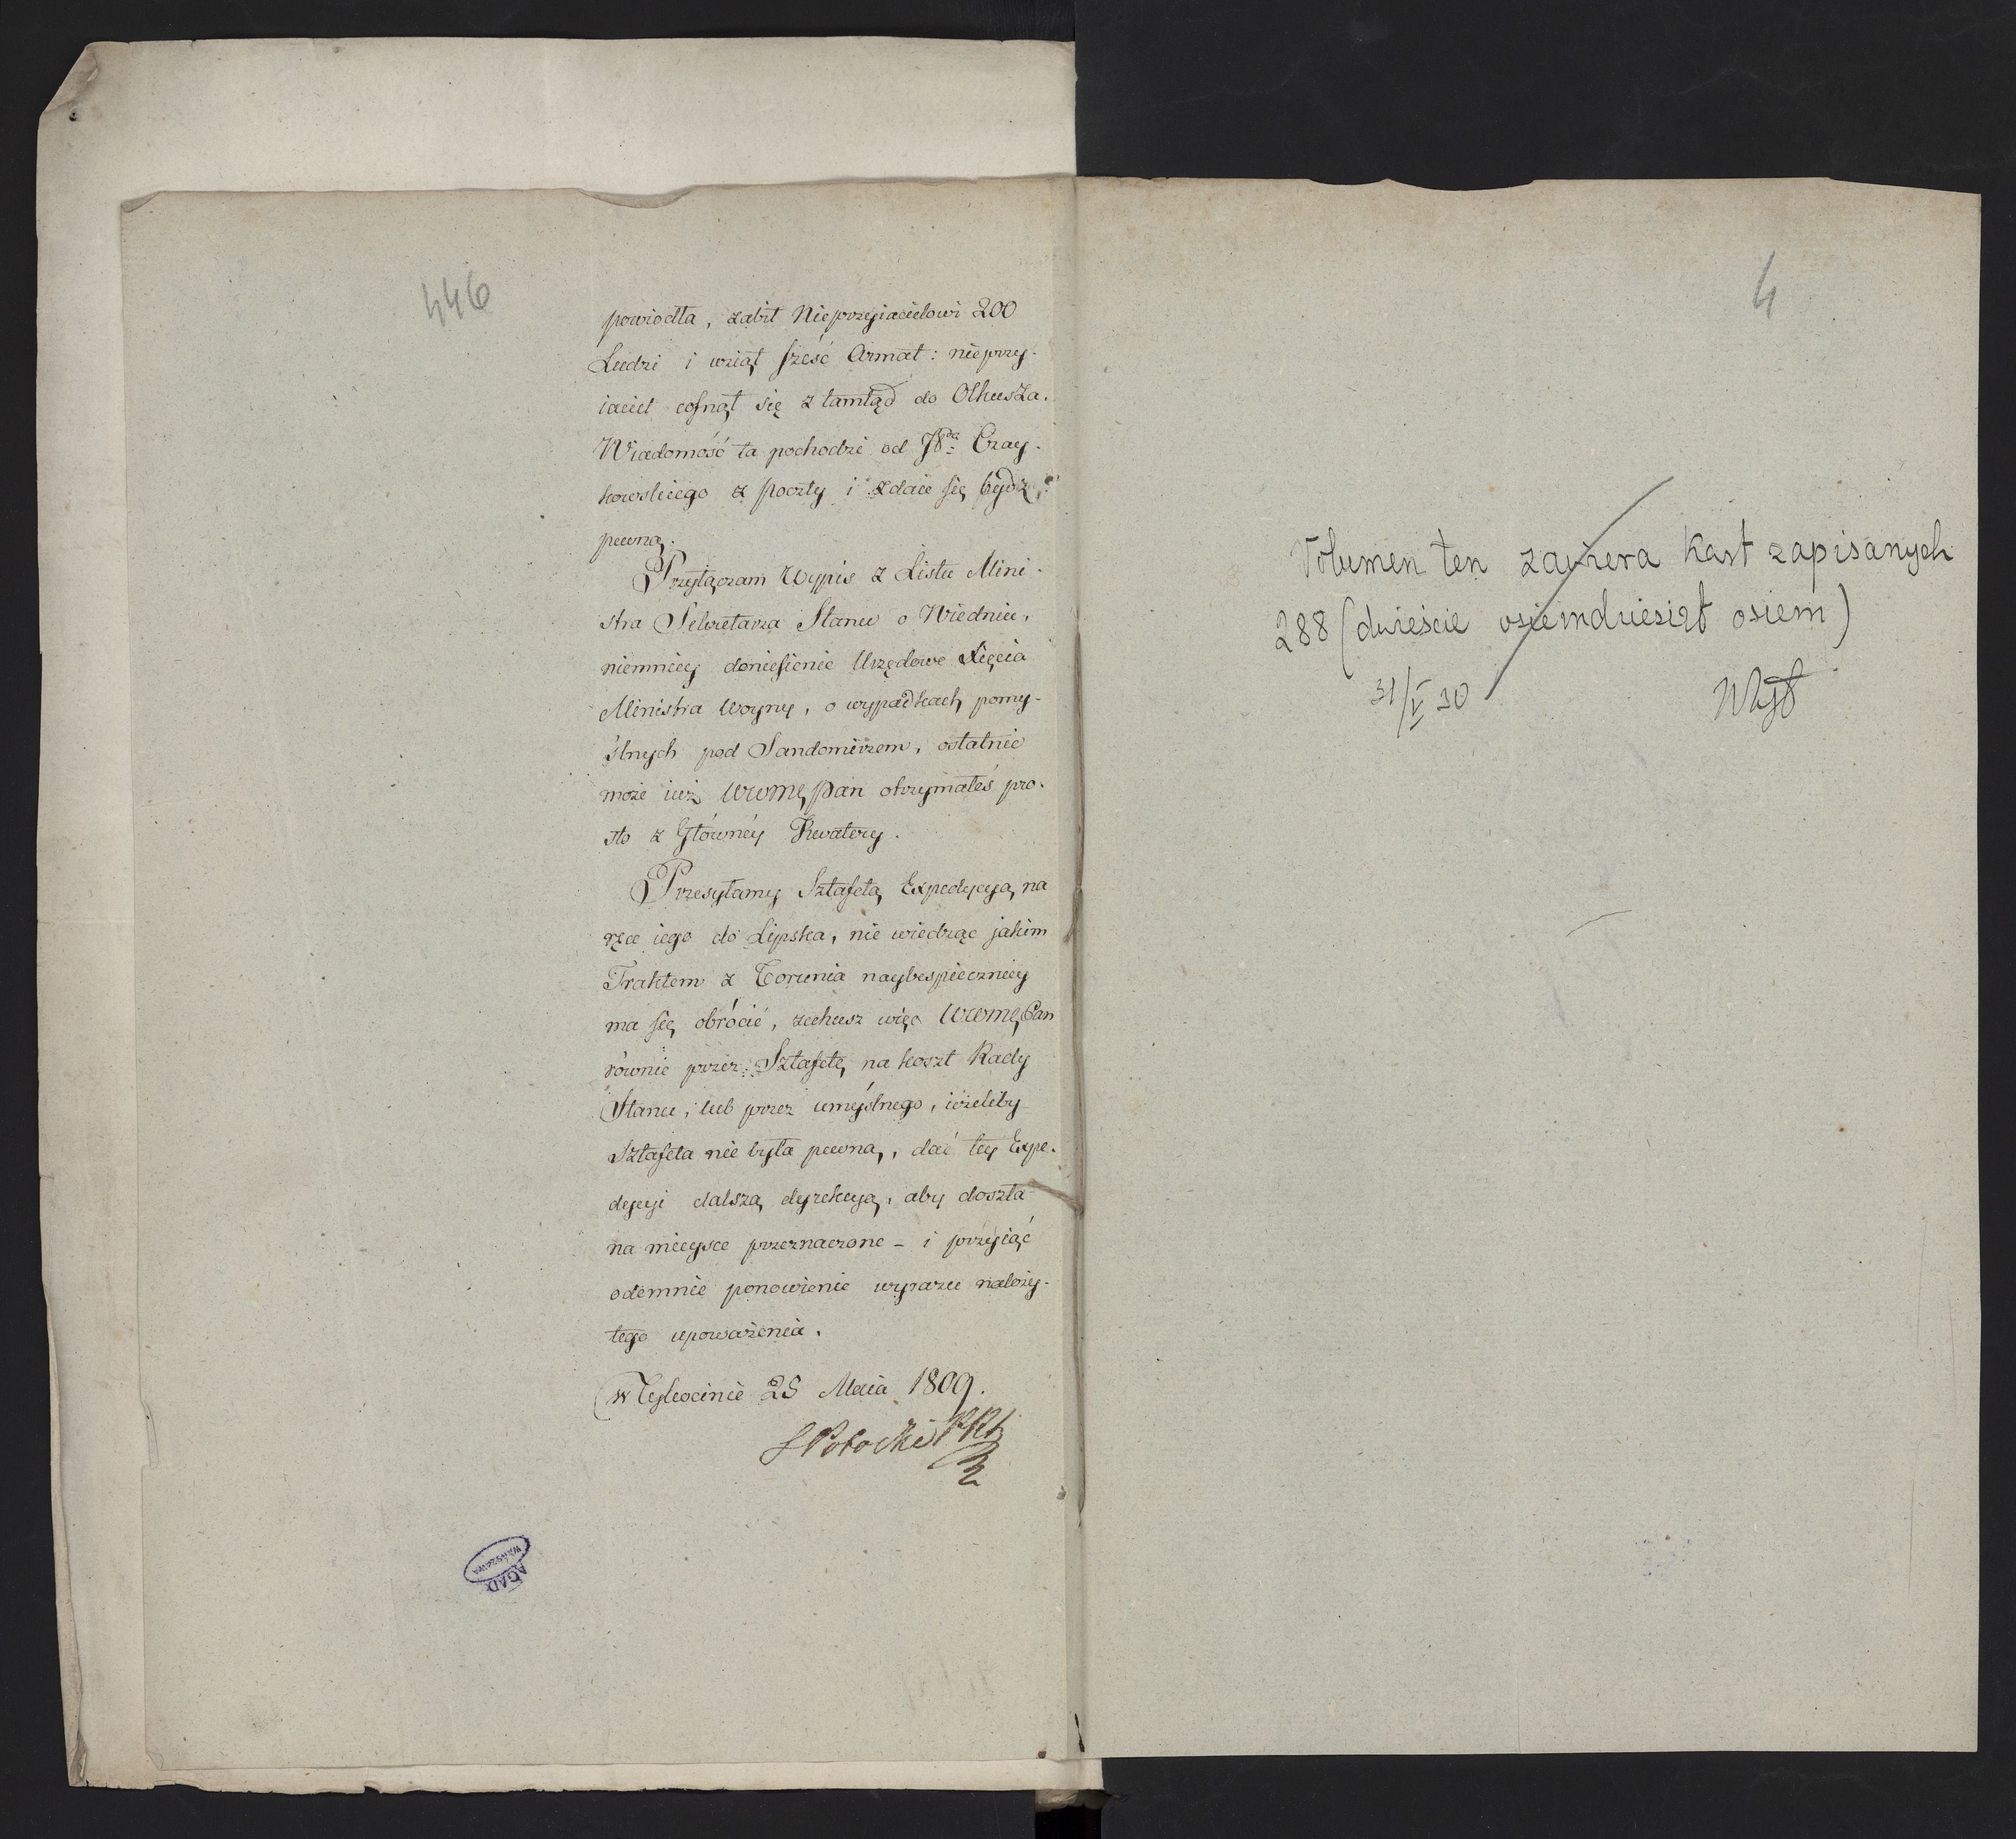 446
powiodła, zabił Nieprzyiacielowi 200
Ludzi i wziął sześć Armat: nieprzy-
iaciel cofnął się z tamtąd do Olkusza.
Wiadomość ta pochodzi od Czay-
kowskiego z poczty i zdaie się bydź
pewną.
Przyłączam Wypis z Listu Mini-
stra Sekretarza Stanu o Wiedniu,
niemniey doniesienie Urzędowe Xięcia
Ministra Woyny, o wypadkach pomy-
ślnych pod Sandomirzem, ostatnie
może iuż WWMPan otrzymałeś pro-
sto z Główney Kwatery.
Przesyłamy Sztafetą Expedycyą na
ręce iego do Lipska, nie wiedząc jakim
Traktem z Torunia naybespieczniey
ma się obrócić, zechcesz więc WWMPan
równie przez Sztafetę na koszt Rady
Stanu, lub przez umyślnego, ieżeliby
Sztafeta nie była pewną, dać tey Expe-
dycyi dalszą dyrekcyą, aby doszła
na mieysce przeznaczone - i przyiąć
odemnie ponowienie wyrazu należy-
tego upoważenia.
w Tykocinie 25 Maia 1809.
S Potocki
AGAD
WARSZAWA
4
Volumen ten zawiera kart zapisanych
288 (dwieście osiemdziesiąt osiem)
31/V 30